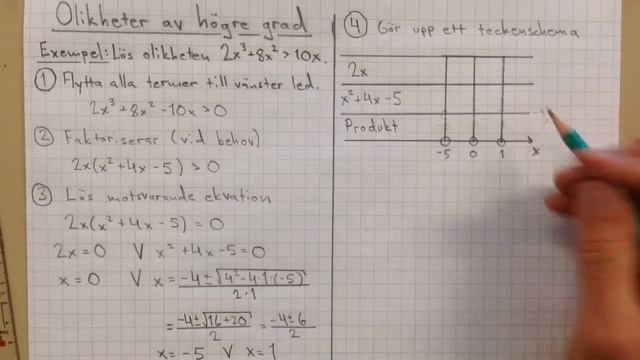 Olikheter av högre grad
Exempel: Lös olikheten 2x³+8x²>10x.
① Flytta alla termer till vänster led.
2x³+8x²-10x>0
② Faktoriserar (vid behov)
2x(x²+4x-5)>0
③ Lös motsvarande ekvation
2x(x²+4x-5)=0
2x=0 V x²+4x-5=0
x=0 V x=(-4±√(4²-4·1·(-5)))/(2·1)
=(-4±√(16+20))/2=(-4±6)/2
x=-5 V x=1
④ Gör upp ett teckenschema
2x
x²+4x-5
Produkt
-5 0 1 x